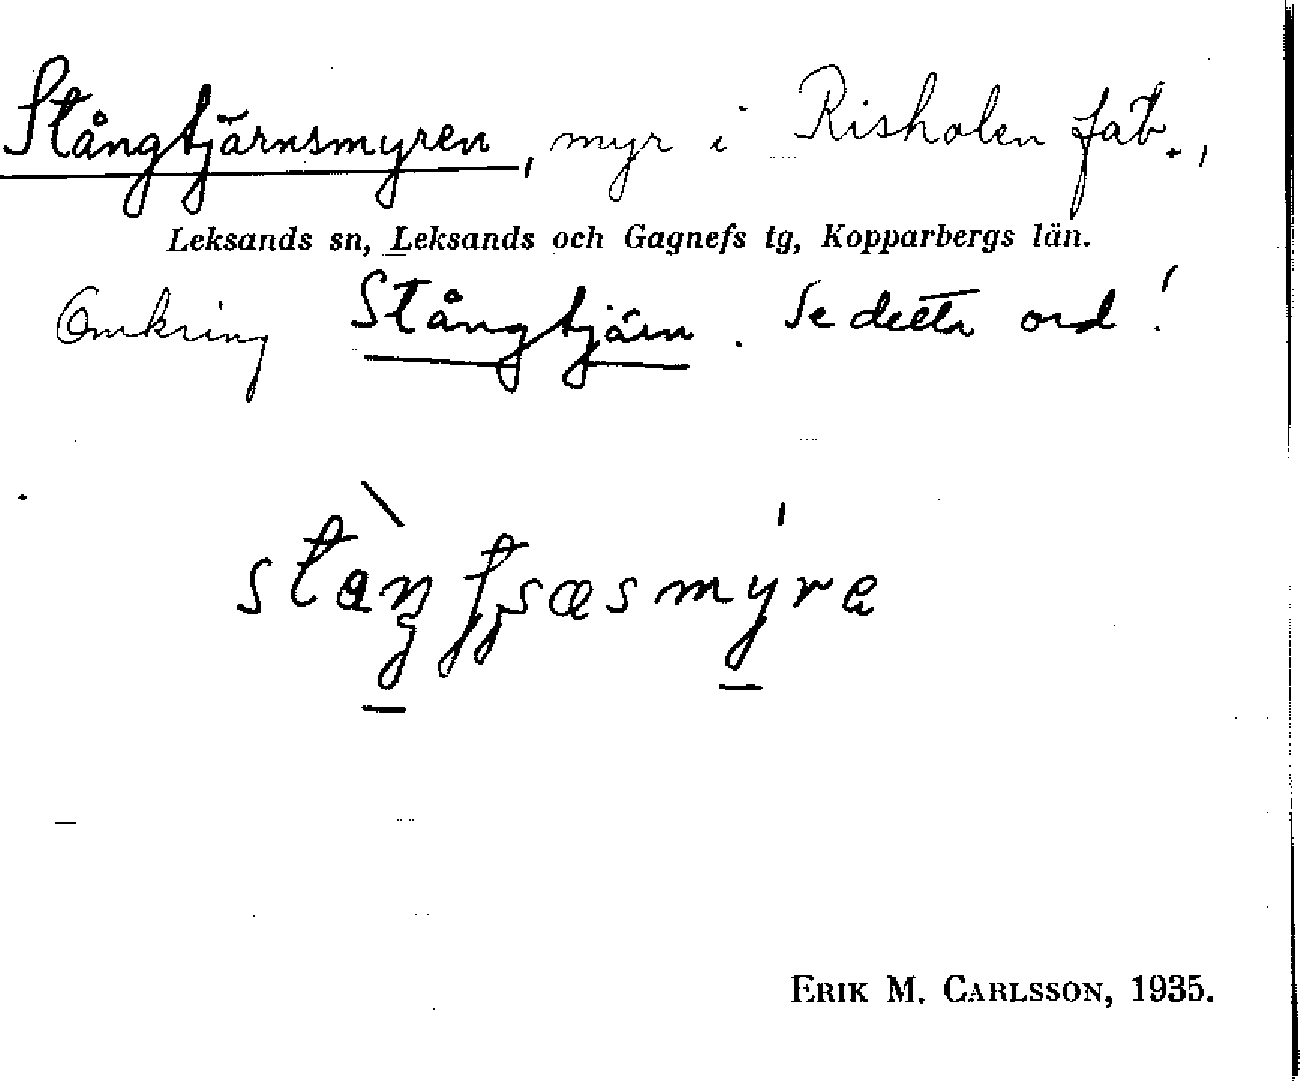 Stångtjärnsmyren, myr i Risholen fäb.,
Leksands sn, Leksands och Gagnefs tg, Kopparbergs län.
Omkring Stångtjärn. Se detta ord!
ERIK M. CARLSSON, 1935.